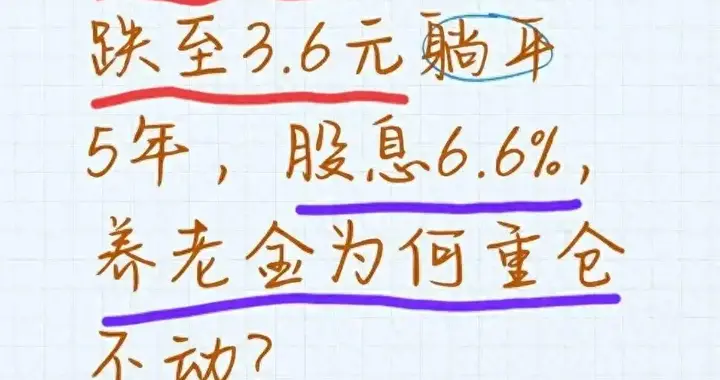 跌至3.6元躺平
5年，股息6.6%，
养老金为何重仓
不动？